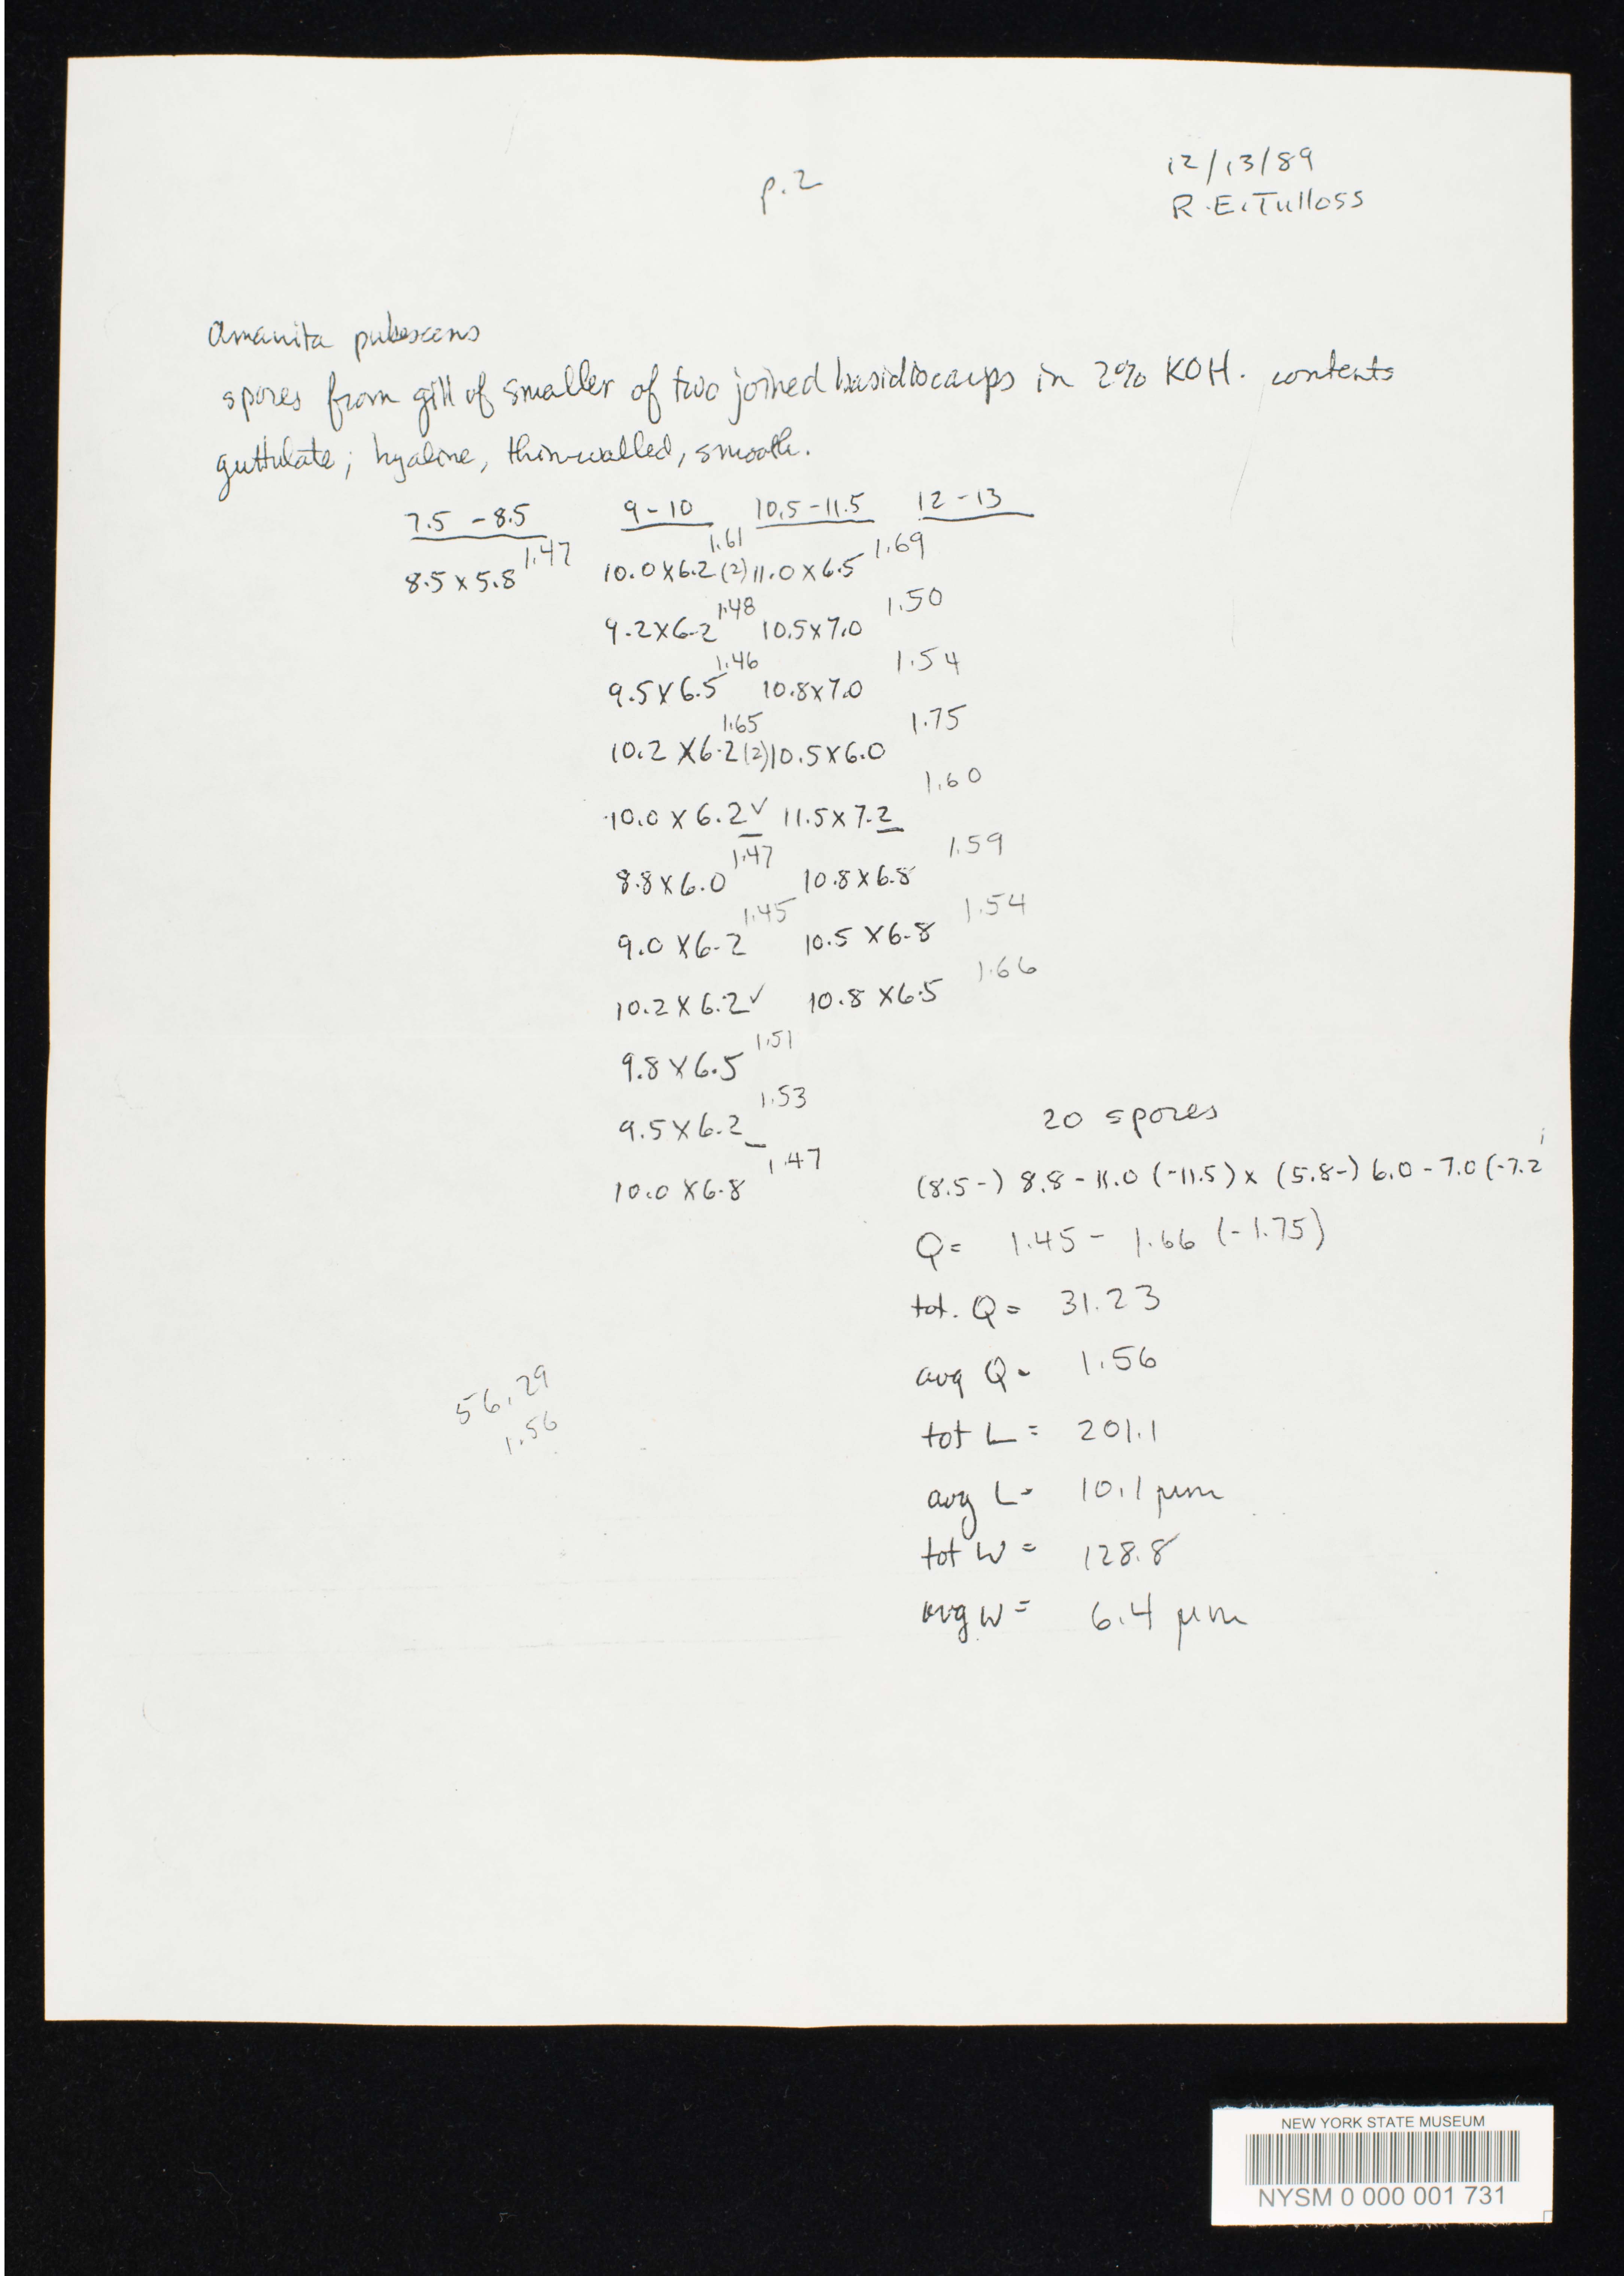 p.2
12/13/89
R.E.Tulloss
Amanita pubescens
spores from gill of smaller of two joined basidiocarps in 2% KOH. contents
guttulate; hyaline, thin-walled, smooth.
7.5 - 8.5 9 - 10 10.5 - 11.5 12 - 13
8.5 x 5.8 1.47 10.0 x 6.2 (2) 1.61 11.0 x 6.5 1.69
9.2 x 6.2 1.48 10.5 x 7.0 1.50
9.5 x 6.5 1.46 10.8 x 7.0 1.54
10.2 x 6.2 (2) 1.65 10.5 x 6.0 1.75
10.0 x 6.2 ✓ 11.5 x 7.2 1.60
8.8 x 6.0 1.47 10.8 x 6.8 1.59
9.0 x 6.2 1.45 10.5 x 6.8 1.54
10.2 x 6.2 ✓ 10.8 x 6.5 1.66
9.8 x 6.5 1.51
9.5 x 6.2 1.53
10.0 x 6.8 1.47
20 spores
(8.5-) 8.8 - 11.0 (-11.5) x (5.8-) 6.0 - 7.0 (-7.2
Q = 1.45 - 1.66 (-1.75)
tot. Q = 31.23
avg Q = 1.56
56.29
1.56
tot L = 201.1
avg L = 10.1 µm
tot W = 128.8
avg W = 6.4 µm
NEW YORK STATE MUSEUM
NYSM 0 000 001 731